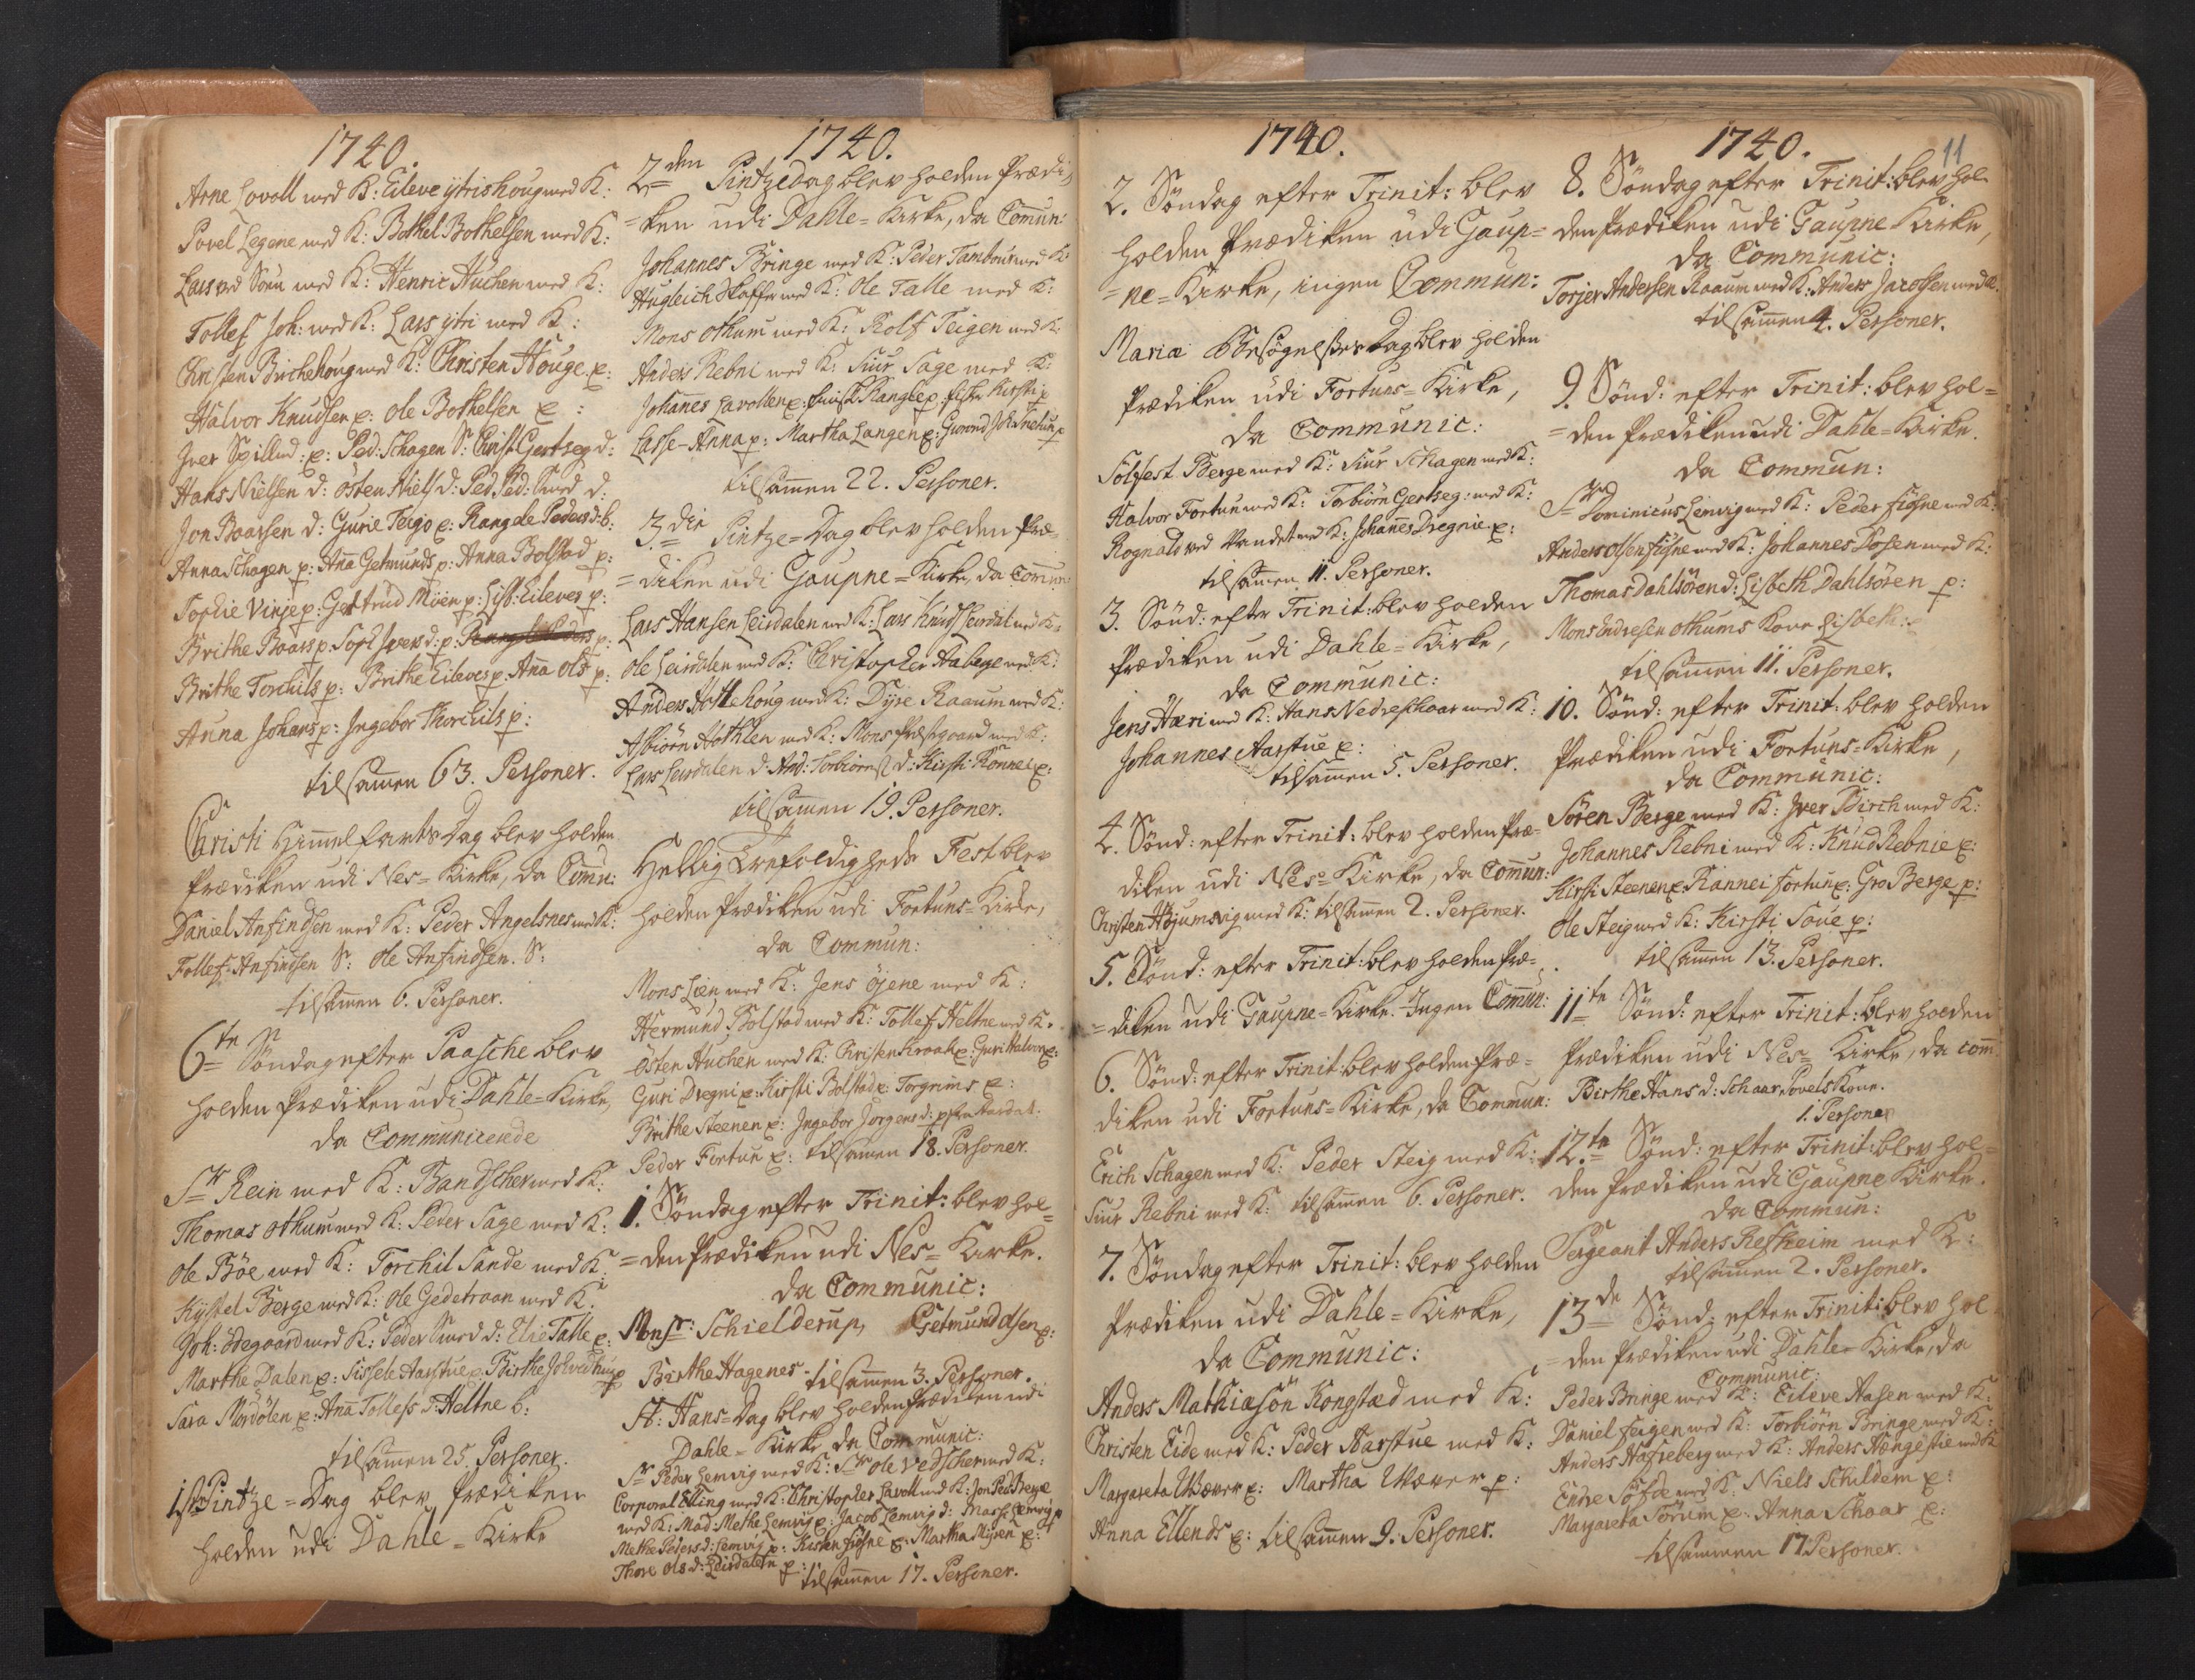 1740.
Arne Lovoll med K: Eileve ytrishoug med K:
Povel Legene med K: Bothel Bothelsen med K:
Lars ved Soen med K: Henric Huchen med K:
Tollef Joh: med K: Lars ytri med K:
Christen Brichehoug med K: Christen Houge e:
Halvor Knudsen e: Ole Bothelsen e:
Iver Spillnd: e: Ped: Schagen S: Christ: Gertseg d:
Hans Nielsen d: Østen Niels d: Ped Ped: Smed d:
Jon Baarsen d: Gurie Teigo e: Rangele Peders d: b:
Anna Schagen p: Ana Getmunds p: Anna Bolstad p:
Sophie Vinje p: Gertrud Möen p: Lisb: Eileves p:
Brithe Baars p: Soph Ivers d: p:
Brithe Torchils p: Brithe Eileves p: Ana Ols p:
Anna Johans p: Ingebor Thorchils p:
tilsamen 63. Personer.
Christi Himelfarts Dag blev holden
Prædiken udi Nes=Kirke, da Comu:
Daniel Anfindsen med K: Peder Angelsnes med K:
Tollef Anfindsen S: Ole Anfindsen. S:
tilsamen 6. Personer.
6te Söndag efter Paasche blev
holden Prædiken udi Dahle=Kirke,
da Communicerede
Sr Rein med K: Bandscher med K:
Thomas Othum med K: Peder Sage med K:
Ole Böe med K: Torchil Sande med K:
Kystel Berge med K: Ole Gedetraan med K:
Joh: Ødegaard med K: Peder Smed d: Elie Talle e:
Marthe Dalen e: Sissele Aarstue e: Birthe
Sara Mördölen e: Ana Tollefs d: Heltne b:
tilsamen 25. Personer.
1ste Pintze=Dag blev Prædiken
holden udi Dahle=Kirke
1740.
2den Pintzedag blev holden Prædi,
=ken udi Dahle=Kirke, da Comun:
Johannes Bringe med K: Peder Tambour med K:
Hugleich Skaffer med K: Ole Talle med K:
Mons Othum med K: Rolf Teigen med K:
Anders Rebni med K: Siur Sage med K:
Johanes Lavollen e:
Lasse-Anna p: Martha Langen e:
tilsamen 22. Personer.
3die Pintze=Dag blev holden Præ=
=diken udi Gaupne=Kirke, da Comun:
Lars Hansen Leirdalen med K: Lars Knuds Leirdal med K:
Ole Leirdalen med K: Christopher Haberge med K:
Anders Hottehoug med K: Dyre Raaum med K:
Asbiörn Hothlen med K: Mons Præstgaard med K:
Lars Leirdalen d: And: Torbiörns d: Kirsti Ronnei e:
tilsamen 19. Personer.
Hellig Trefoldigheds Fest blev
holden Prædiken udi Fortuns=Kirke,
da Commun:
Mons Lien med K: Jens Öjene med K:
Hermund Bolstad med K: Tollef Heltne med K:
Østen Huchen med K: Christen Kroak e: Guri Halvors e:
Guri Dregni e: Kirsti Bolstad e: Torgrims e:
Brithe Steenen e: Ingebor Jörgens d: p
Peder Fortun e: tilsamen 18. Personer.
1. Söndag efter Trinit: blev hol=
=den Prædiken udi Nes=Kirke.
da Communic:
Monsr: Schielderup, Getmund Olsen e:
Birthe Hagenes. tilsamen 3. Personer.
St: Hans=Dag blev holden Prædiken udi
Dahle=Kirke, da Communic:
Sr Peder Lemvig med K: Sr Ole Vedscher med K:
Corporal Elling med K: Christopher Lavoll med K: Jon Ped: Berge
med K: Mad: Methe Lemvig e: Jacob Lemvig d: Marg: Lemvig p
Methe Peders d: Lemvig p: Kirsten Fiøsne e: Martha Mÿren e:
Thore Ols d: Leirdalen p: tilsamen 17. Personer.
1740.
2. Söndag efter Trinit: blev
holden Prædiken udi Gaup=
=ne=Kirke, ingen Commun:
Mariæ Besögnelses Dag blev holden
Prædiken udi Fortuns=Kirke,
da Communic:
Solfest Berge med K: Siur Schagen med K:
Halvor Fortun med K: Torbiörn Gertseg: med K:
Rognald ved Vandet med K: Johanes Dregnie e:
tilsamen 11. Personer.
3. Sönd: efter Trinit: blev holden
Prædiken udi Dahle=Kirke,
da Communic:
Jens Hæri med K: Hans Nedreschaar med K:
Johannes Aarstue e:
tilsamen 5. Personer.
4. Sönd: efter Trinit: blev holden Præ=
diken udi Nes=Kirke, da Comun:
Christen Højumsvig med K: tilsamen 2. Personer.
5. Sönd: efter Trinit: blev holden Præ=
=diken udi Gaupne=Kirke. Ingen Comun:
6. Sönd: efter Trinit: blev holden Præ=
diken udi Fortuns=Kirke, da Commun:
Erich Schagen med K: Peder Steig med K:
Siur Rebni med K: tilsamen 6. Personer.
7. Söndag efter Trinit: blev holden
Prædiken udi Dahle=Kirke,
da Communic:
Anders Mathiæsön Kongstad med K:
Christen Eide med K: Peder Aarstue med K:
Margareta Wæver e: Martha Wæver p:
Anna Ellends e: tilsamen 9. Personer.
1740.
11
8. Söndag efter Trinit: blev hol=
den Prædiken udi Gaupne=Kirke,
da Communic:
Torjer Andersen Raaum med K: Anders Jacobsen med K:
tilsamen 4. Personer.
9. Sönd: efter Trinit: blev hol=
=den Prædiken udi Dahle=Kirke.
da Commun:
Sr Dominicus Lemvig med K: Peder Fiøsne med K:
Anders Olsen Fiøsne med K: Johannes Kosen med K:
Thomas Dahlsören d: Lisbeth Dahlsören p:
Mons Endresen Othums Kone Lisbeth:
tilsamen 11. Personer.
10. Sönd: efter Trinit: blev holden
Prædiken udi Fortuns=Kirke,
da Communic:
Sören Berge med K: Iver Birch med K:
Johannes Rebni med K: Knud Rebnie e:
Kirsti Steenen e: Rannei Fortun e: Gro Berge p:
Ole Steig med K: Kirsti Soue p:
tilsamen 13. Personer.
11te Sönd: efter Trinit: blev holden
Prædiken udi Nes=Kirke, da com:
Birthe Hans d: Schaar, Povels Kone.
1. Person.
12te Sönd: efter Trinit: blev hol=
den Prædiken udi Gaupne Kirke.
da Commun:
Sergeant Anders Refheim med K:
tilsamen 2. Personer.
13de Sönd: efter Trinit: blev hol
=den Prædiken udi Dahle=Kirke, da
Communic:
Peder Bringe med K: Eileve Aasen med K:
Daniel Teigen med K: Torbiörn Bringe med K:
Anders Hafreberg med K: Anders Hængestie med K:
Endre Söfde med K: Niels Schuldem e:
Margareta Sörum e: Anna Schaar e:
tilsammen 17 Personer.